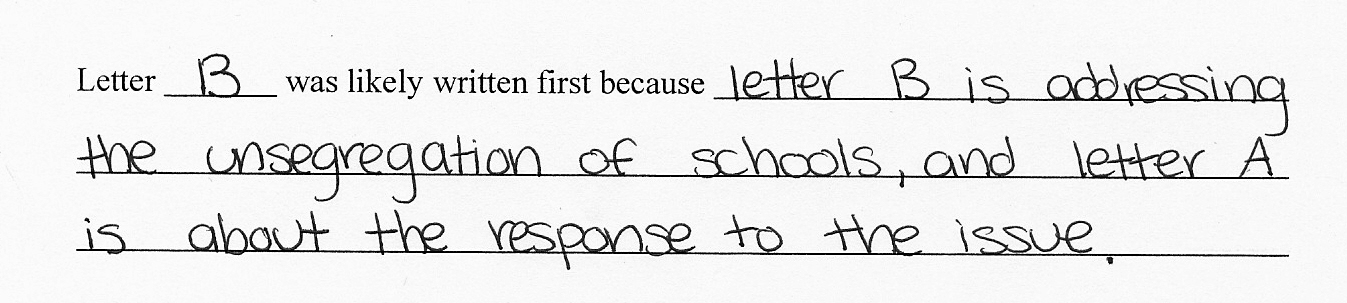 Letter B was likely written first because letter B is addressing
the unsegregation of schools, and letter A
is about the response to the issue.